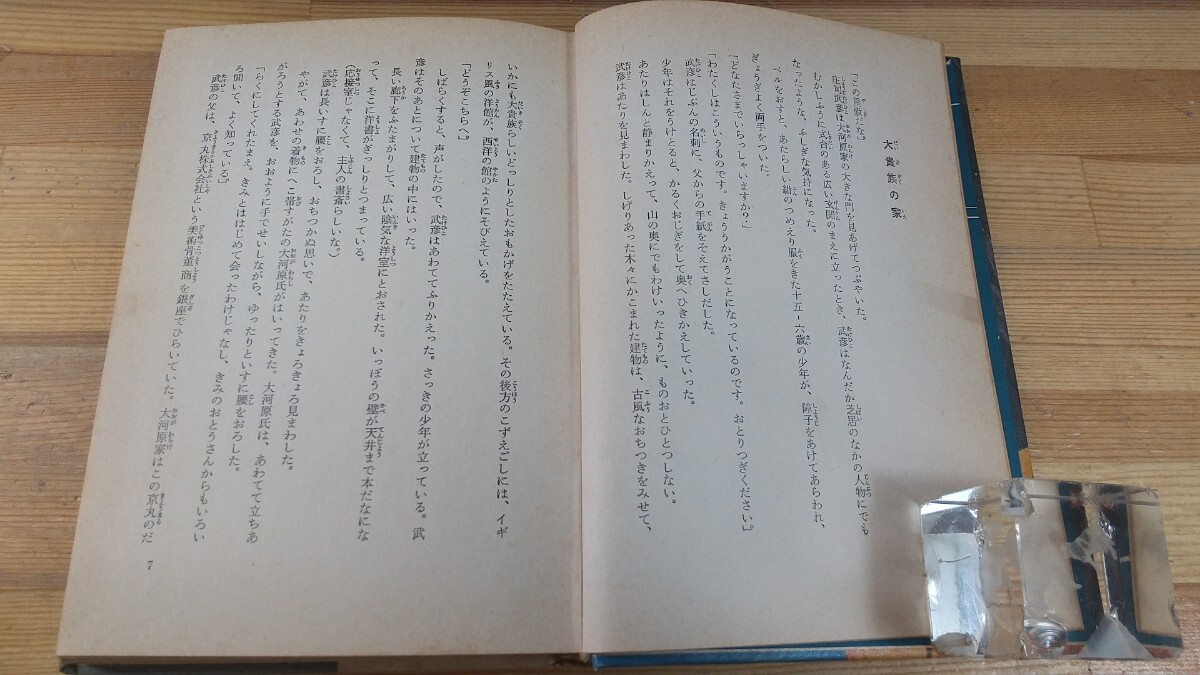 大貴族の家
「この屋敷だな」
庄司武彦は大河原家の大きな門を見あげてつぶやいた。
むかしふうに式台のある広い玄関のまえに立ったとき、武彦はなんだか芝居のなかの人物にでも
なったような、ふしぎな気持になった。
ベルをおすと、あたらしい紺のつめえり服をきた十五-六歳の少年が、障子をあけてあらわれ、
ぎょうぎよく両手をついた。
「どなたさまでいらっしゃいますか?」
「わたくしはこういうものです。きょううかがうことになっているのです。おとりつぎください」
武彦はじぶんの名刺に、父からの手紙をそえてさしだした。
少年はそれをうけとると、かるくおじぎをして奥へひきかえしていった。
あたりはしんと静まりかえって、山の奥にでもわけいったように、ものおとひとつしない。
武彦はあたりを見まわした。しげりあった木々にかこまれた建物は、古風なおちつきをみせて、
いかにも大貴族らしいどっしりとしたおもかげをたたえている。その後方のこずえごしには、イギ
リス風の洋館が、西洋の館のようにそびえている。
「どうぞこちらへ」
しばらくすると、声がしたので、武彦はあわててふりかえった。さっきの少年が立っている。武
彦はそのあとについて建物の中にはいった。
長い廊下をふたまがりして、広い陰気な洋室にとおされた。いっぽうの壁が天井まで本だなにな
って、そこに洋書がぎっしりとつまっている。
(応接室じゃなくて、主人の書斎らしいな。)
武彦は長いすに腰をおろし、おちつかぬ思いで、あたりをきょろきょろ見まわした。
やがて、あわせの着物にへこ帯すがたの大河原氏がはいってきた。大河原氏は、あわてて立ちあ
がろうとする武彦を、おおように手でせいしながら、ゆったりといすに腰をおろした。
「らくにしてくれたまえ。きみとははじめて会ったわけじゃなし、きみのおとうさんからもいろい
ろ聞いて、よく知っている」
武彦の父は、京丸株式会社という美術骨董商を銀座でひらいていた。大河原家はこの京丸のだ
7